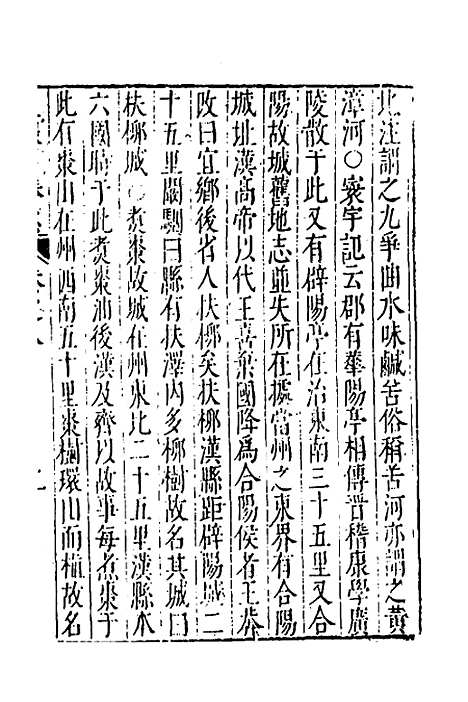 北注謂之九爭曲水味鹹苦俗稱苦河亦謂之黃
漳河○寰宇記云郡有華陽亭相傳晉嵇康學廣
陵散于此又有辟陽亭在治東南三十五里又合
陽故城舊地志並失所在據當州之東界有合陽
城址漢高帝以代王喜棄國降爲合陽侯者王莽
改曰宜鄉後省入扶柳矣扶柳漢縣距辟陽城二
十五里闞駰曰縣有扶澤內多柳樹故名其城曰
扶柳城○煑棗故城在州東北二十五里漢縣本
六國時于此煑棗油後漢及齊以故事每煮棗于
此有棗山在州西南五十里棗樹環山而植故名